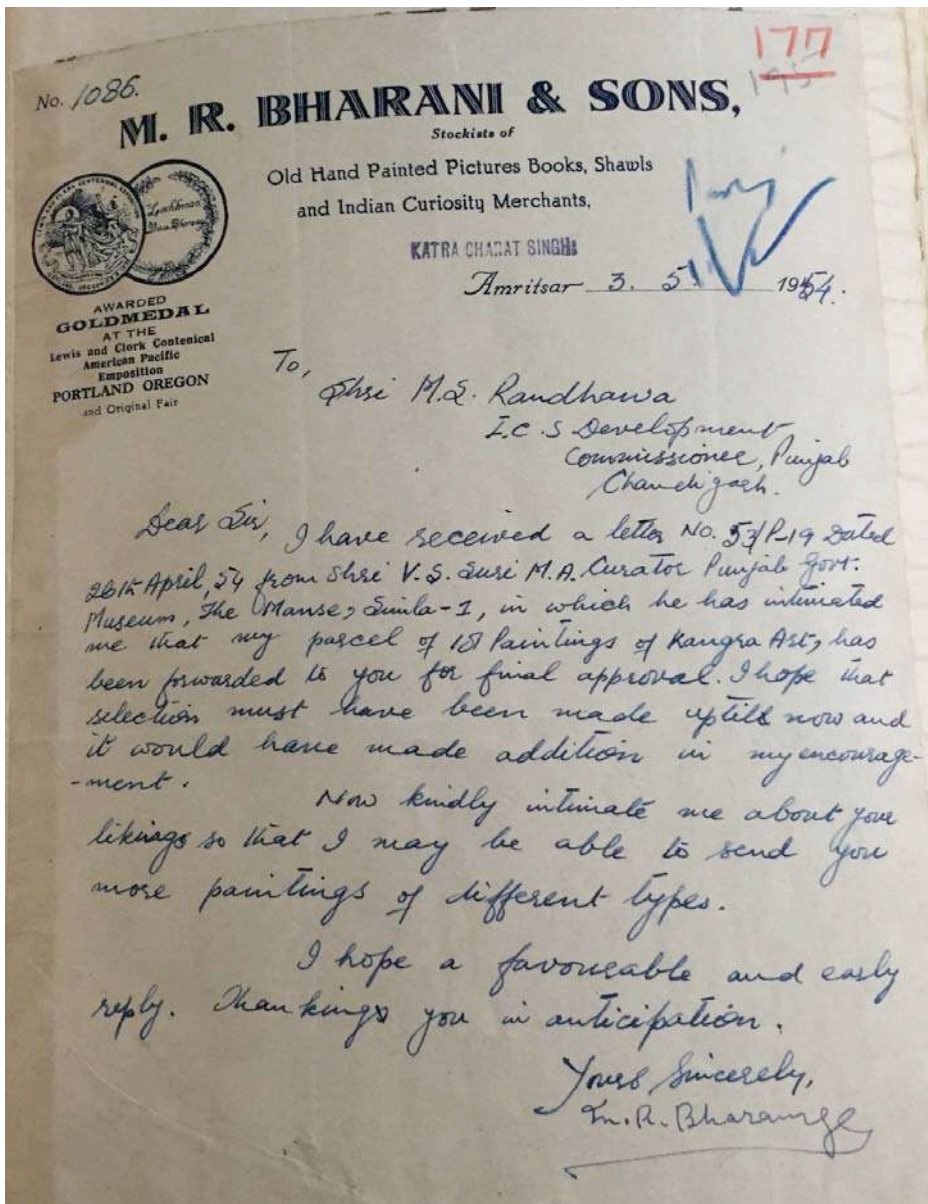 177
195
No. 1086.
M. R. BHARANI & SONS,
Stockists of
Old Hand Painted Pictures Books, Shawls
and Indian Curiosity Merchants,
KATRA CHARAT SINGH
Amritsar 3. 5. 1954.
AWARDED
GOLDMEDAL
AT THE
Lewis and Clork Contenical
American Pacific
Emposition
PORTLAND OREGON
and Original Fair
To,
Shri M.S. Randhawa
I.C.S Development
Commissioner, Punjab
Chandigarh.
Dear Sir,
I have received a letter No. 53/P-19 Dated
26th April, 54 from Shri V.S. Suri M.A. Curator Punjab Govt.
Museum, The Manse, Simla-1, in which he has intimated
me that my parcel of Paintings of Kangra Art, has
been forwarded to you for final approval. I hope that
selection must have been made uptill now and
it would have made addition in my encourage-
-ment.
Now kindly intimate me about your
likings so that I may be able to send you
more paintings of different types.
I hope a favourable and early
reply. Thankings you in anticipation.
Yours Sincerely,
M.R. Bharani